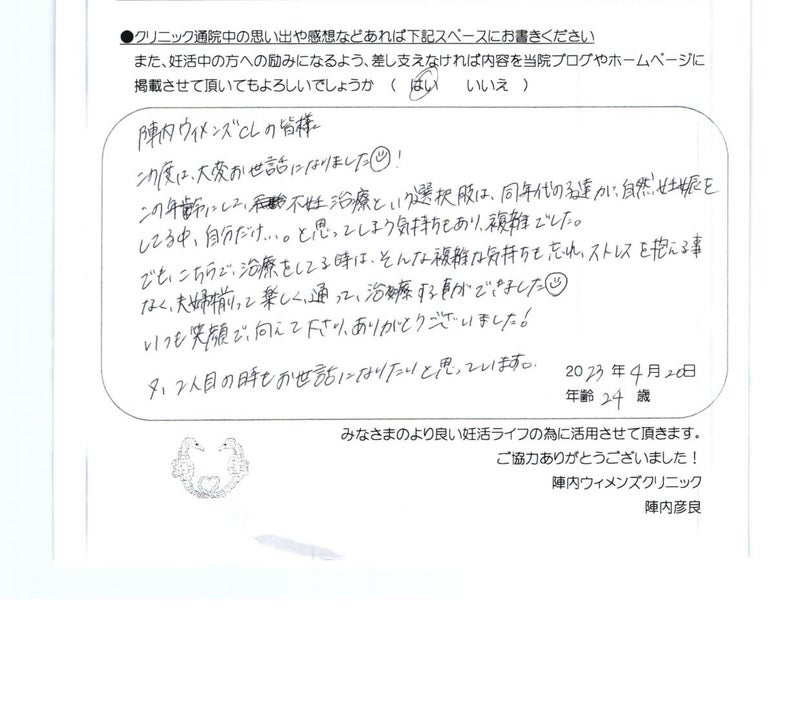 ●クリニック通院中の思い出や感想などあれば下記スペースにお書きください
また、妊活中の方への励みになるよう、差し支えなければ内容を当院ブログやホームページに
掲載させて頂いてもよろしいでしょうか ( はい いいえ )
陣内ウィメンズCLの皆様
この度は、大変お世話になりました☺!
この年齢にして、不妊治療という選択肢は、同年代の子達が、自然妊娠を
してる中、自分だけ…。と思ってしまう気持ちもあり、複雑でした。
でも、こちらで、治療をしてる時は、そんな複雑な気持ちも忘れ、ストレスを抱える事
なく、夫婦揃って楽しく、通って、治療する事ができました☺
いつも笑顔で、向えて下さり、ありがとうございました!
又、2人目の時もお世話になりたいと思っています。
2023年4月20日
年齢 24 歳
みなさまのより良い妊活ライフの為に活用させて頂きます。
ご協力ありがとうございました!
陣内ウィメンズクリニック
陣内彦良